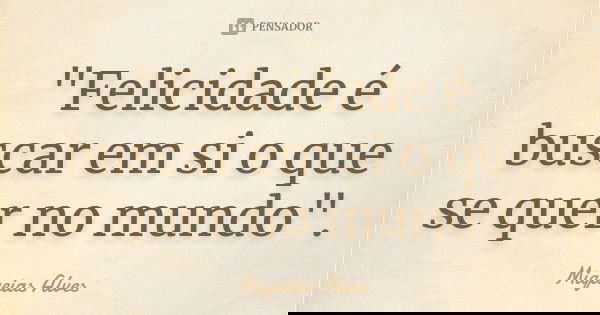 PENSADOR
"Felicidade é
buscar em si o que
se quer no mundo".
Miqueias Alves